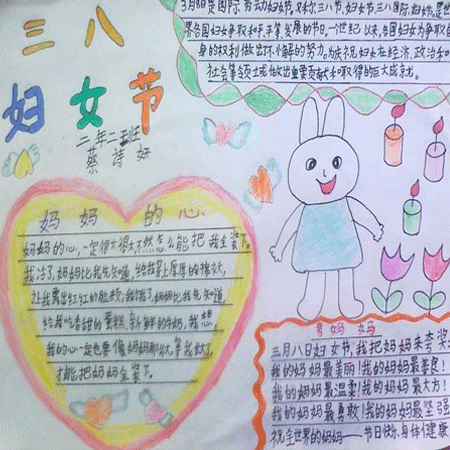 三八
妇女节
二年二班
蔡诗妍
3月8日是国际劳动妇女节,又称三八节,妇女节三八国际妇女节.是世
界各国妇女争取和平平等,发展的节日.一世纪以来,各国妇女为争取自
身的权利做出不懈的努力.为庆祝妇女在经济、政治和
社会等领域做出重要贡献和取得的巨大成就。
妈妈的心
妈妈的心,一定很大很大不然怎么能把我全装下。
我冷了,妈妈比我先知道,给我穿上厚厚的棉衣,
让我露出红红的脸颊;我饿了,妈妈比我先知道,
给我吃香甜的蛋糕,新鲜的牛奶,我想,
我的心一定也要像妈妈那样大,等我大了,
才能把妈妈全装下。
妈妈
三月八日妇女节,我把妈妈来夸奖
我的妈妈最美丽!我的妈妈最善良!
我的妈妈最温柔!我的妈妈最大方!
我的妈妈最勇敢!我的妈妈最坚强
祝全世界的妈妈——节日快乐,身体健康